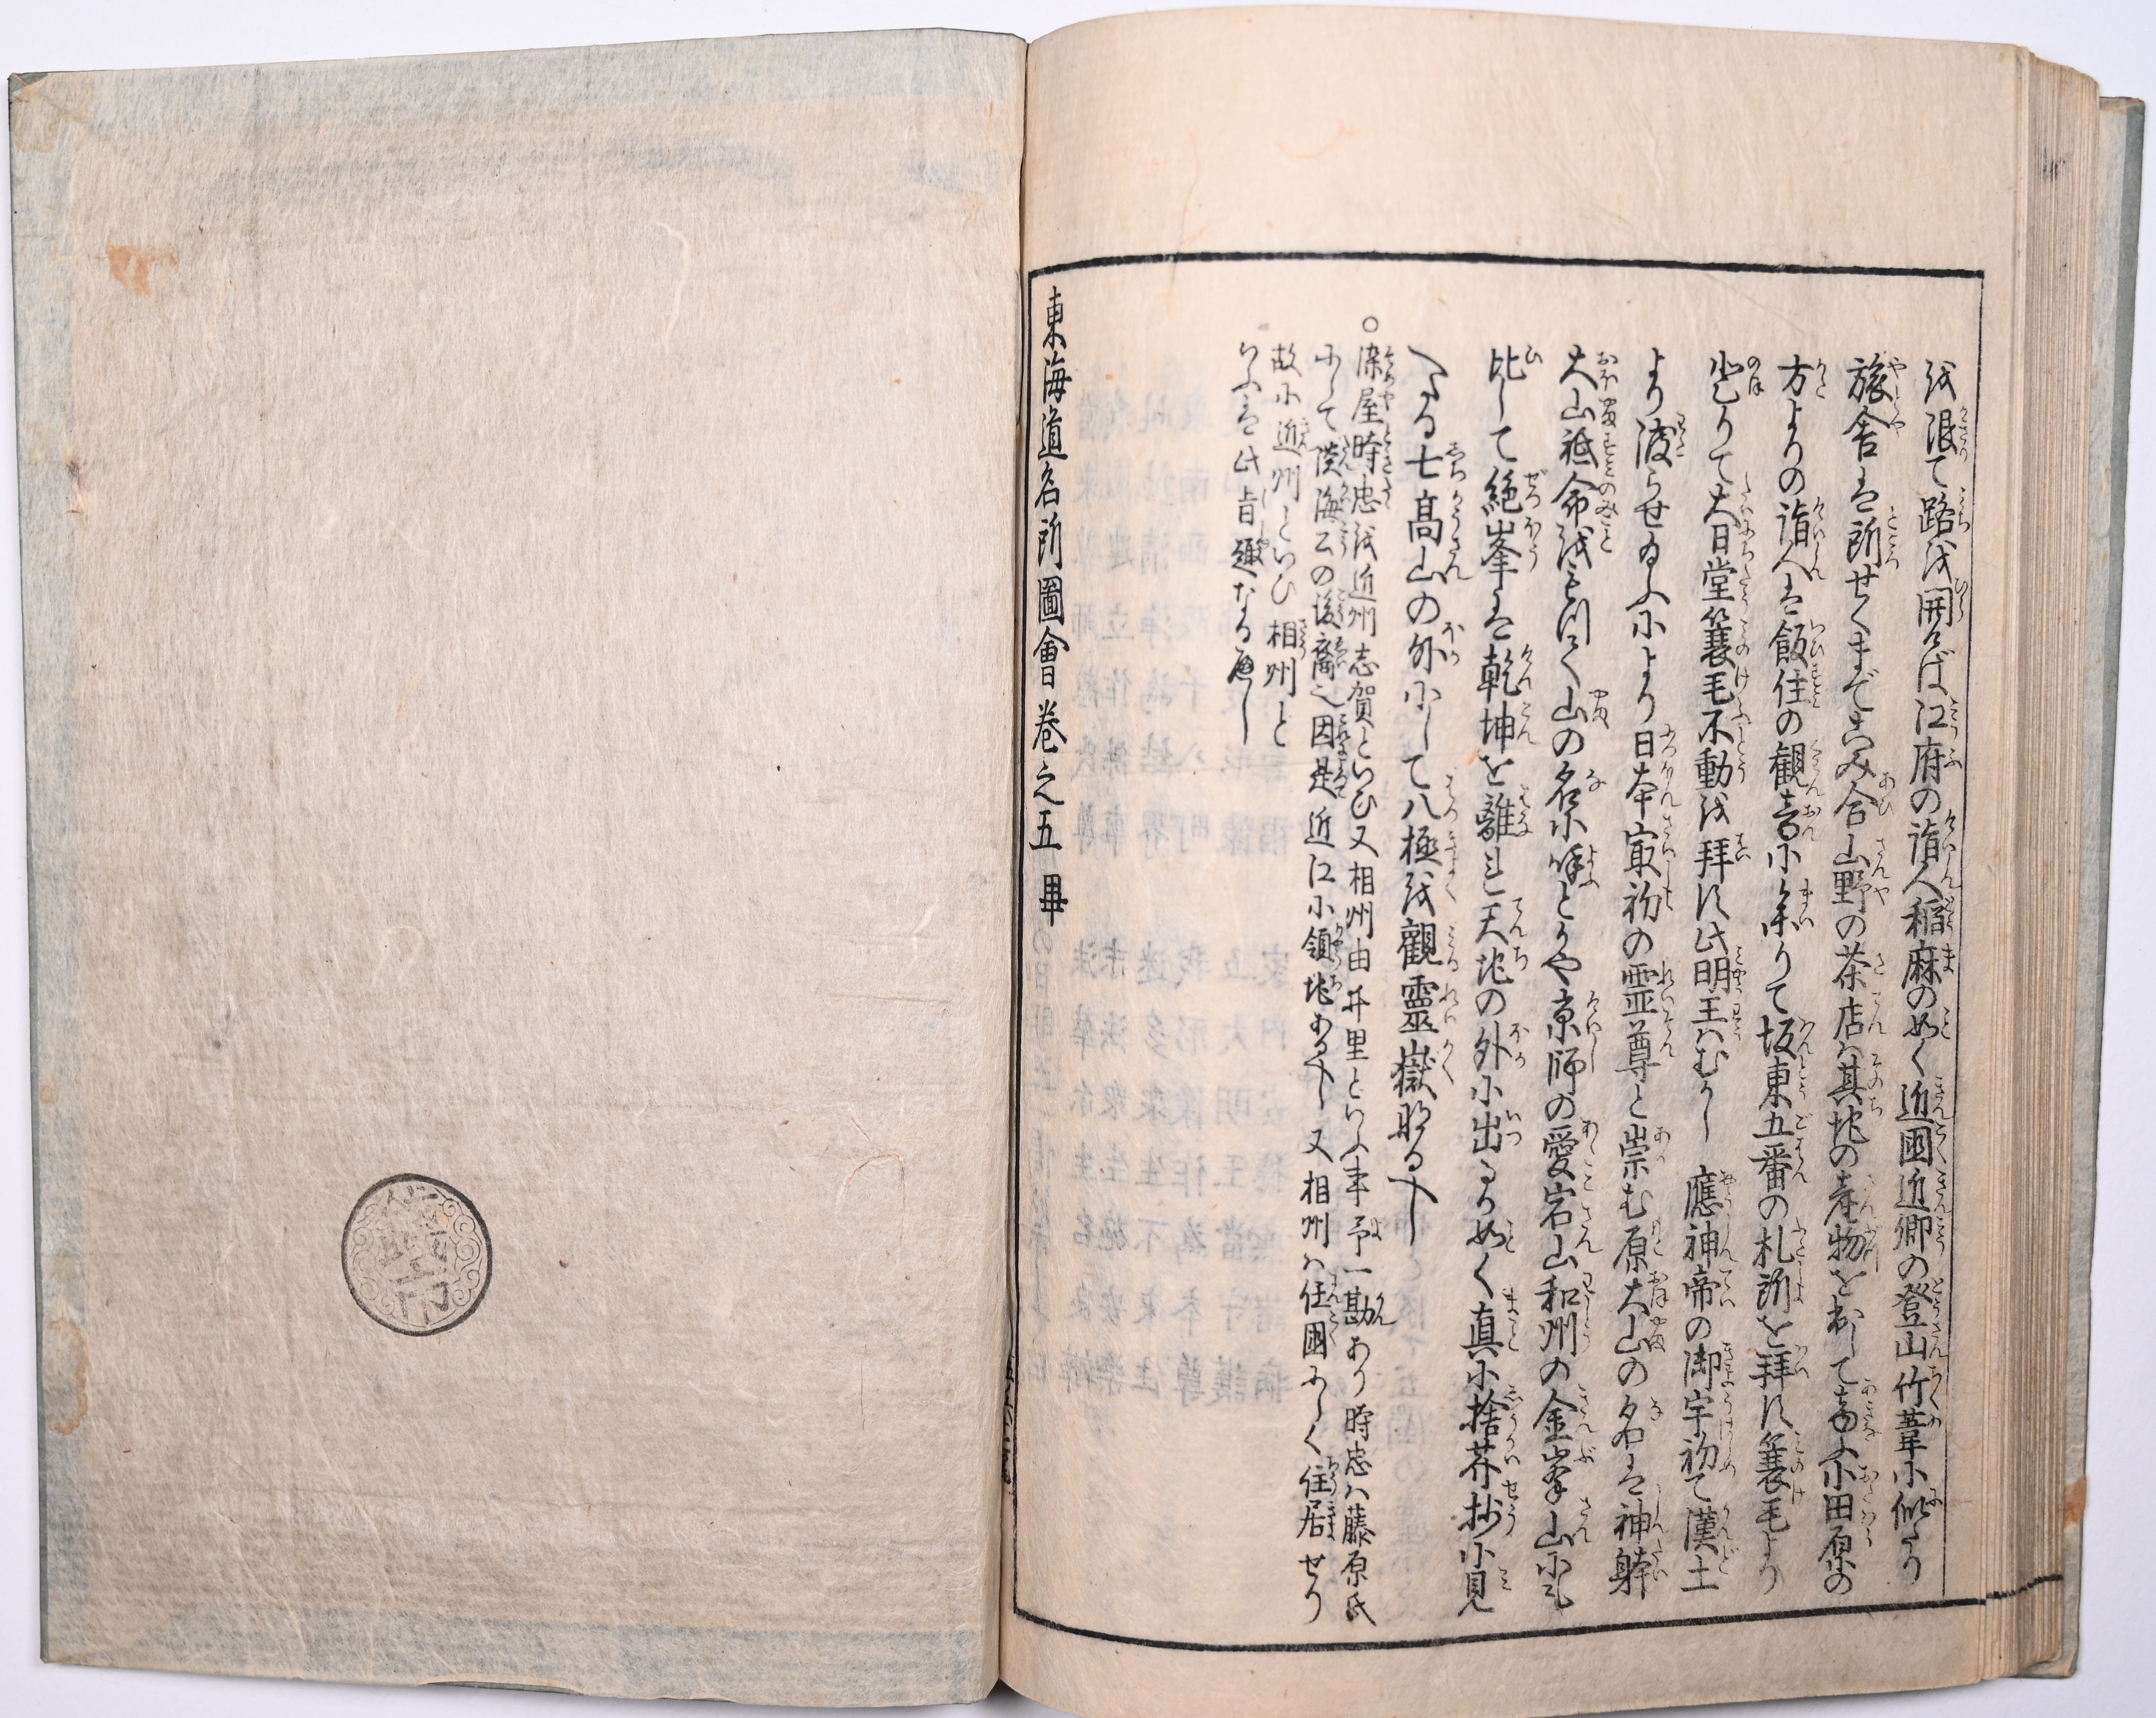 を限て路を開けば江府の詣人稲麻の如く近國近郷の登山竹葦に似たり
旅舎は所せくまでこみ合山野の茶店は其地の産物を出して商ふ小田原の
方よりの詣人は飯住の観音に参りて坂東五番の札所を拝に簑毛より
登りて大日堂簑毛不動を拝に此明王はむかし 應神帝の御宇初て漢土
より渡らせ給ふにより日本最初の霊尊と崇む原大山の名は神躰
大山祇命を以て山の名に呼とかや京師の愛宕山和州の金峯山にも
比して絶峯は乾坤を離れ天地の外に出るか如く真に捨芥抄に見
へたる七高山の外にして八極を觀靈嶽なるべし
○染屋時忠を近州志賀といひ又相州由井里といふ事予一勘あり時忠は藤原氏
にして淡海公の後裔也因是近江に領地あるべし又相州は任國にして住居せり
故に近州といひ相州と
いふは此旨趣なるべし
東海道名所圖會巻之五 畢